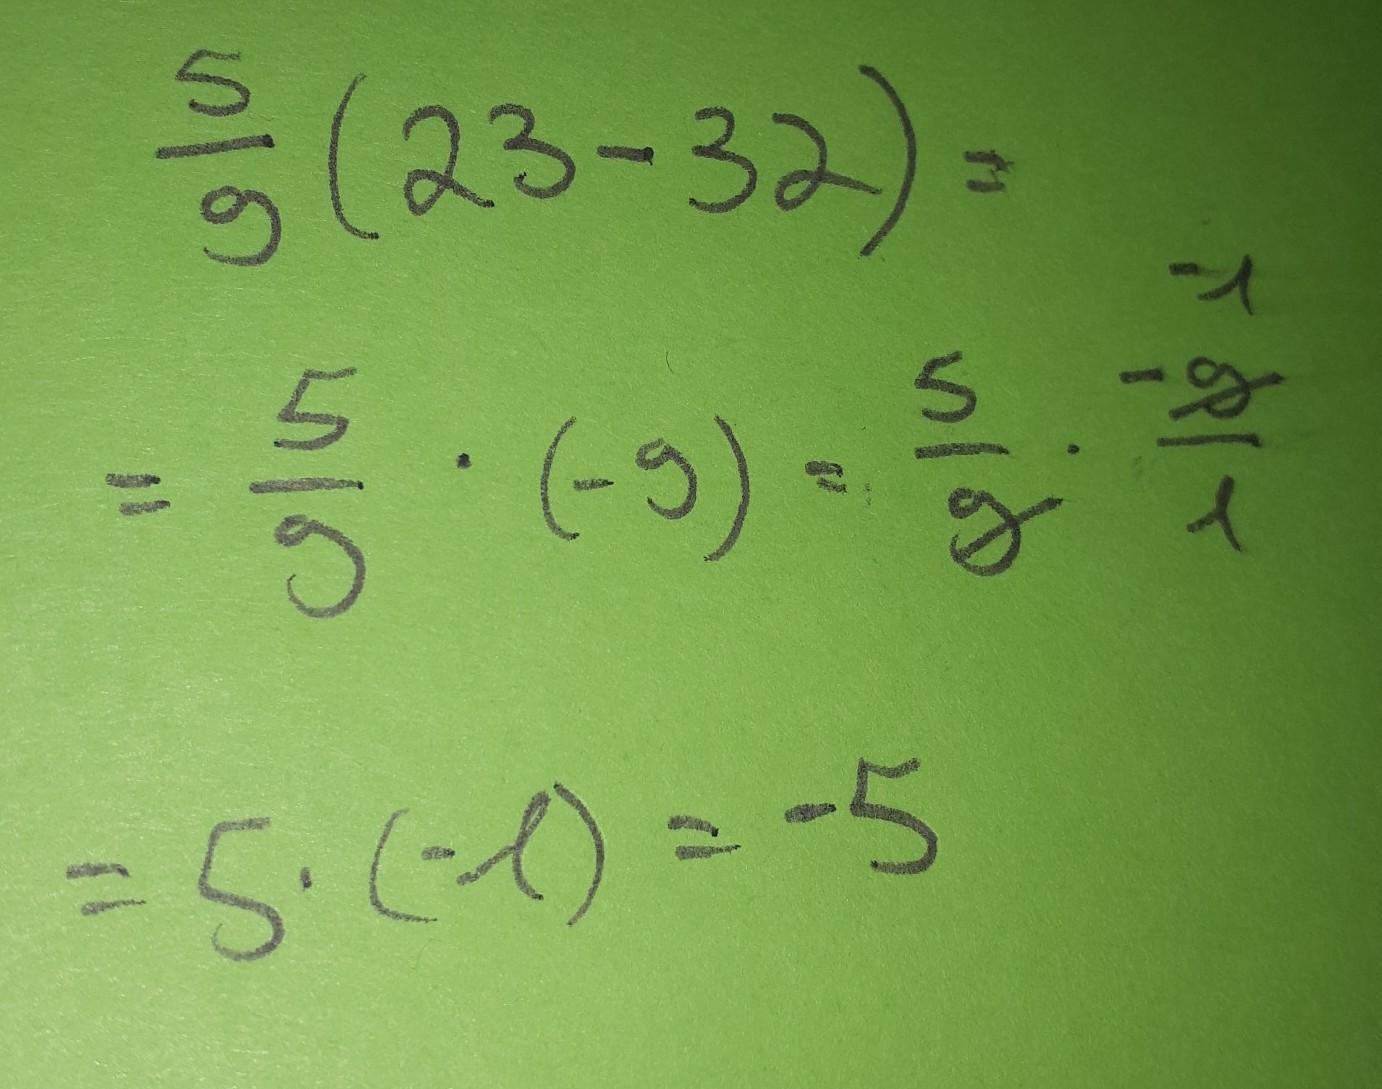 5/9 (23-32) =
= 5/9 · (-9) = 5/9 · -9/1 -1
= 5 · (-1) = -5